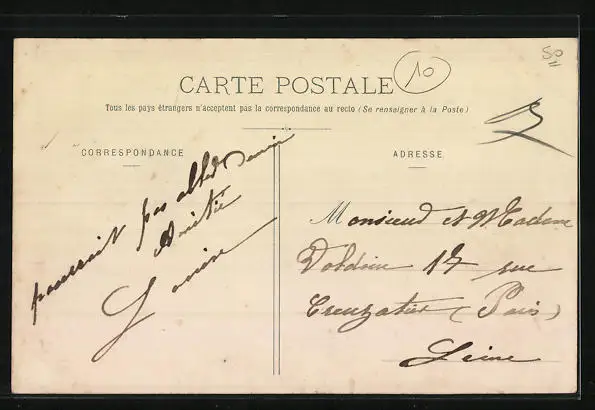 50
10
CARTE POSTALE
Tous les pays étrangers n'acceptent pas la correspondance au recto (Se renseigner à la Poste)
CORRESPONDANCE
ADRESSE
pourrait pas
Amitié
Louise
Monsieur et Madame
17 rue
Creuzatier (Paris)
Seine